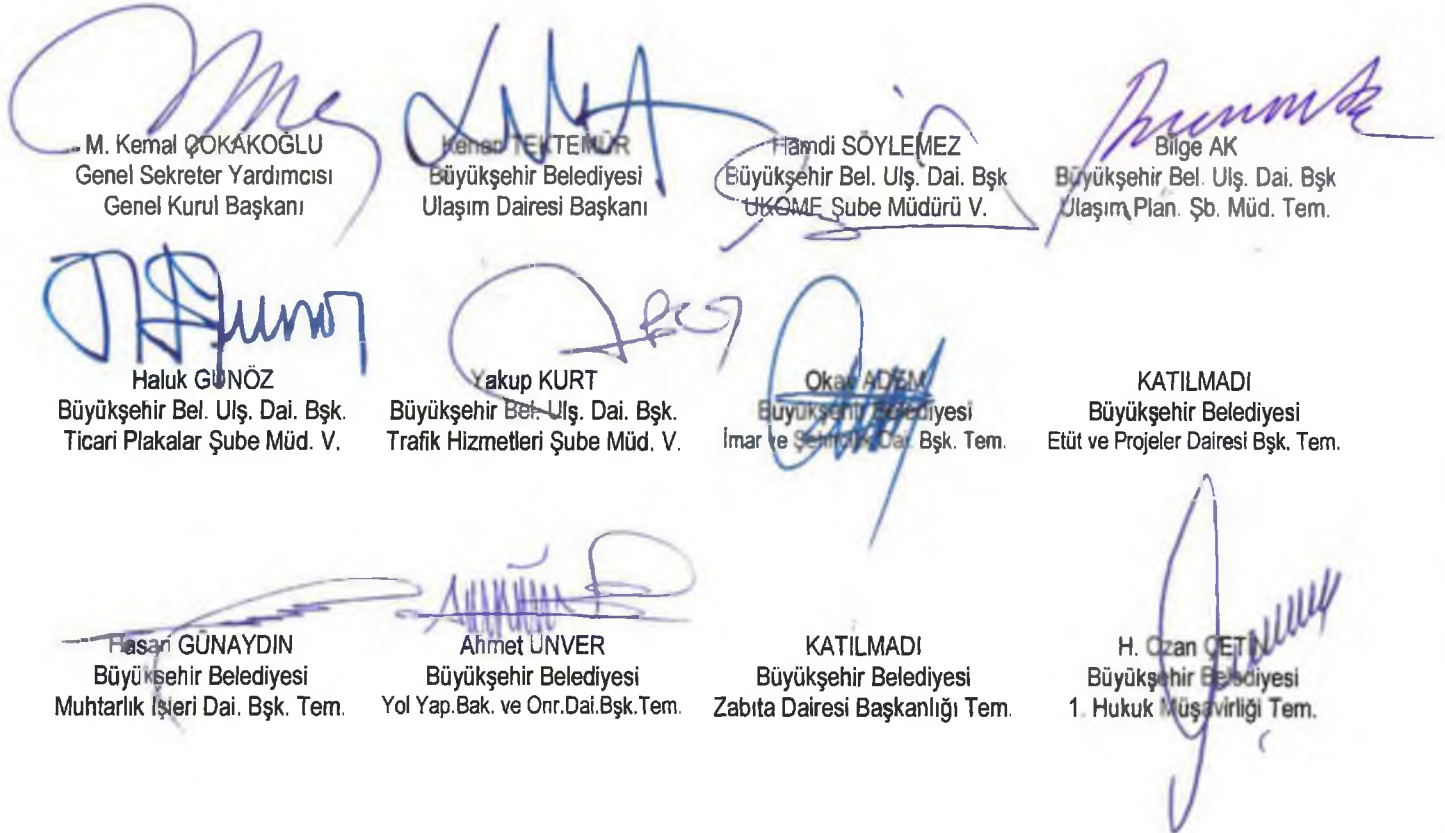 M. Kemal ÇOKAKOĞLU
Genel Sekreter Yardımcısı
Genel Kurul Başkanı
Kenan TEKTEMUR
Büyükşehir Belediyesi
Ulaşım Dairesi Başkanı
Hamdi SÖYLEMEZ
Büyükşehir Bel. Ulş. Dai. Bşk
UKOME Şube Müdürü V.
Bilge AK
Büyükşehir Bel. Ulş. Dai. Bşk
Ulaşım Plan. Şb. Müd. Tem.
Haluk GÜNÖZ
Büyükşehir Bel. Ulş. Dai. Bşk.
Ticari Plakalar Şube Müd. V.
Yakup KURT
Büyükşehir Bel. Ulş. Dai. Bşk.
Trafik Hizmetleri Şube Müd. V.
Okay ADEM
Büyükşehir Belediyesi
İmar ve Şehircilik Dai. Bşk. Tem.
KATILMADI
Büyükşehir Belediyesi
Etüt ve Projeler Dairesi Bşk. Tem.
Hasan GÜNAYDIN
Büyükşehir Belediyesi
Muhtarlık İşleri Dai. Bşk. Tem.
Ahmet ÜNVER
Büyükşehir Belediyesi
Yol Yap.Bak. ve Onr.Dai.Bşk.Tem.
KATILMADI
Büyükşehir Belediyesi
Zabıta Dairesi Başkanlığı Tem.
H. Ozan ÇETİN
Büyükşehir Belediyesi
1. Hukuk Müşavirliği Tem.